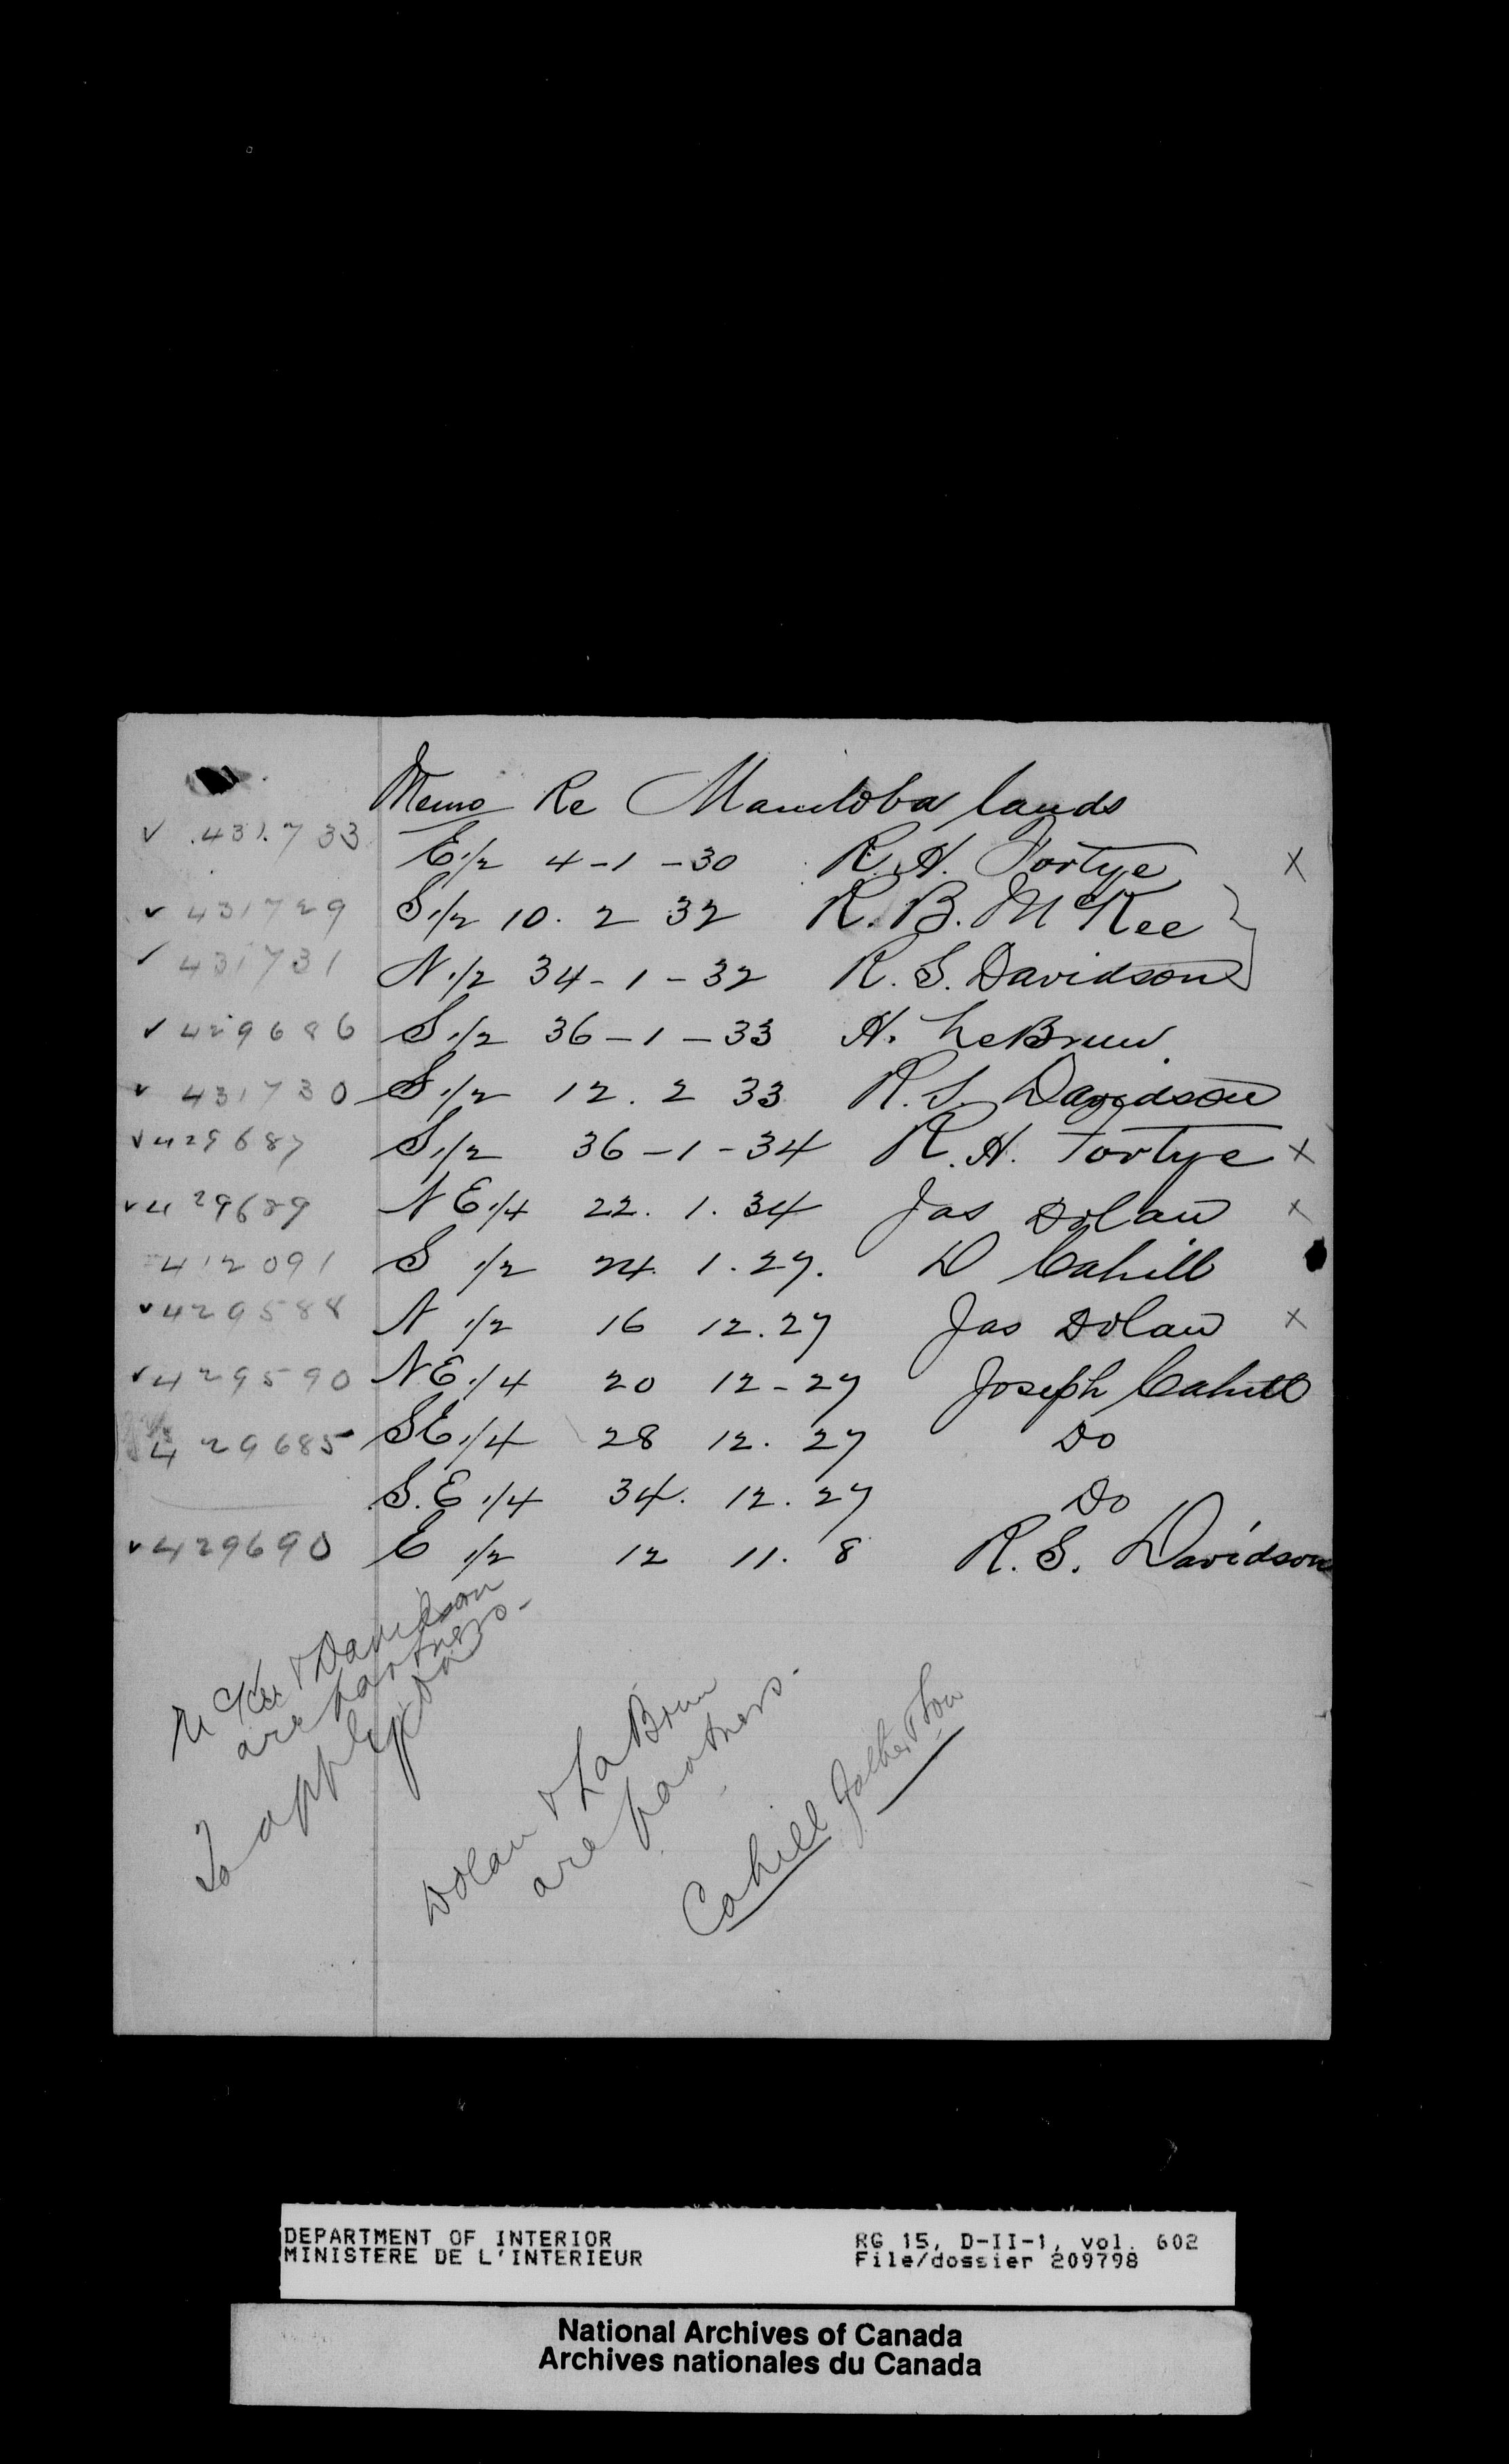 Memo Re Manitoba lands
✓ 431.733 E 1/2 4-1-30 R. H. Fortye X
✓ 431729 S 1/2 10. 2 32 R. B. McKee
✓ 431731 N 1/2 34-1-32 R. S. Davidson
✓ 429686 S 1/2 36-1-33 H. LeBrun
✓ 431730 S 1/2 12. 2 33 R. S. Davidson
✓ 429687 S 1/2 36-1-34 R. H. Fortye X
✓ 429689 N E 1/4 22. 1. 34 Jas Dolan X
412091 S 1/2 24. 1. 27. D Cahill
✓ 429588 N 1/2 16 12.27 Jas Dolan X
✓ 429590 N.E. 1/4 20 12-27 Joseph Cahill
429685 S E 1/4 28 12. 27 Do
S. E 1/4 34. 12. 27 Do
✓ 429690 E 1/2 12 11. 8 R. S. Davidson
McKee & Davidson
are partners-
To apply
Dolan & LaBrun
are partners-
Cahill Father & Son
DEPARTMENT OF INTERIOR
MINISTERE DE L'INTERIEUR
RG 15, D-II-1, vol. 602
File/dossier 209798
National Archives of Canada
Archives nationales du Canada